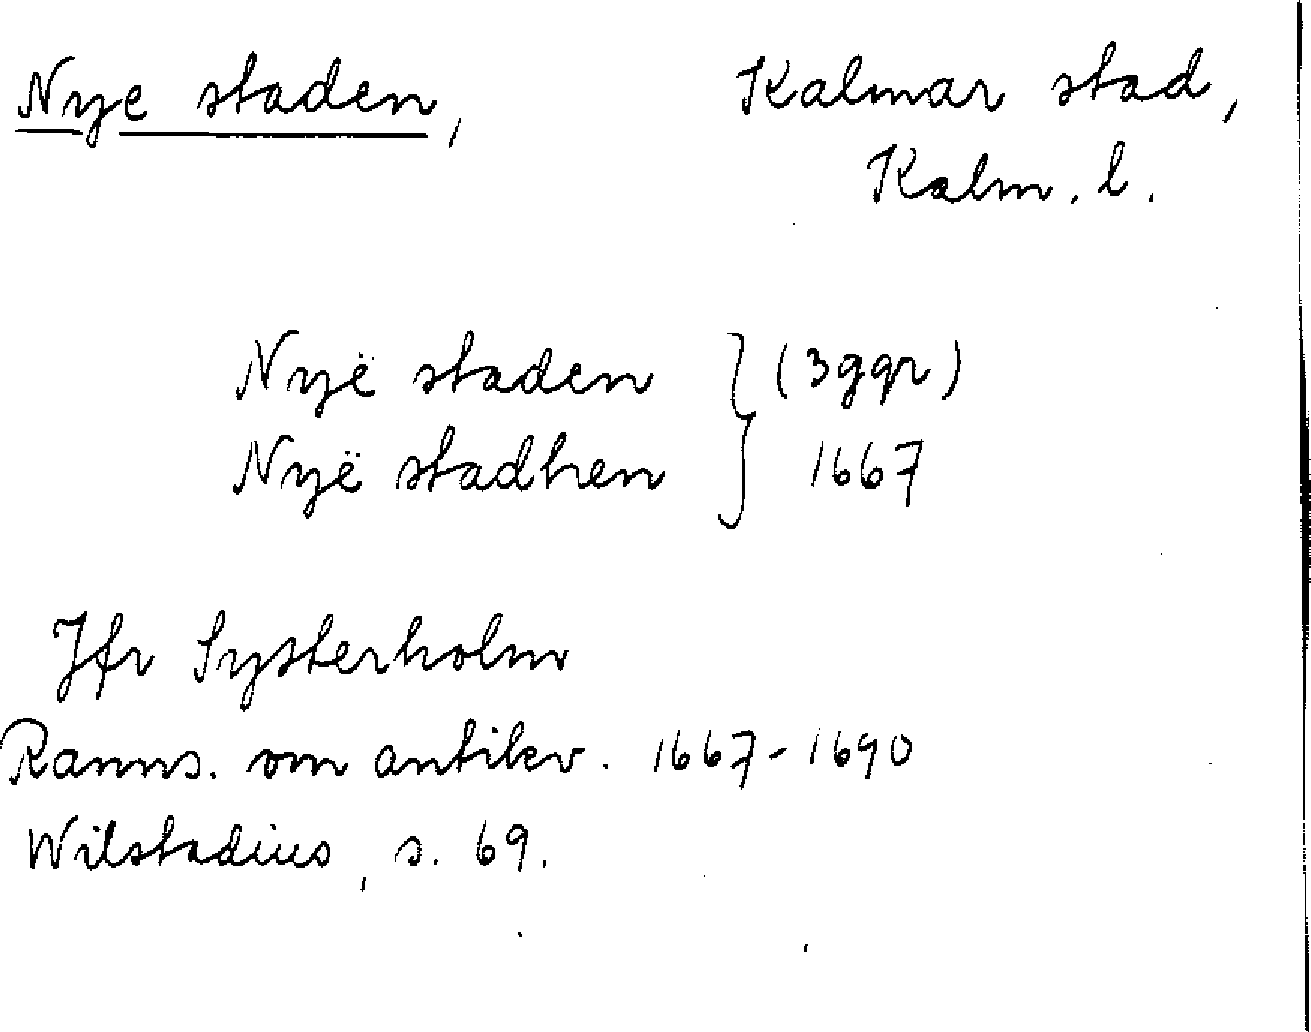 Nye staden, Kalmar stad,
Kalm. l.
Nyë staden } (3ggr)
Nyë stadhen } 1667
Jfr Systerholm
Ranns. om antikv. 1667-1690
Wilstadius, s. 69.